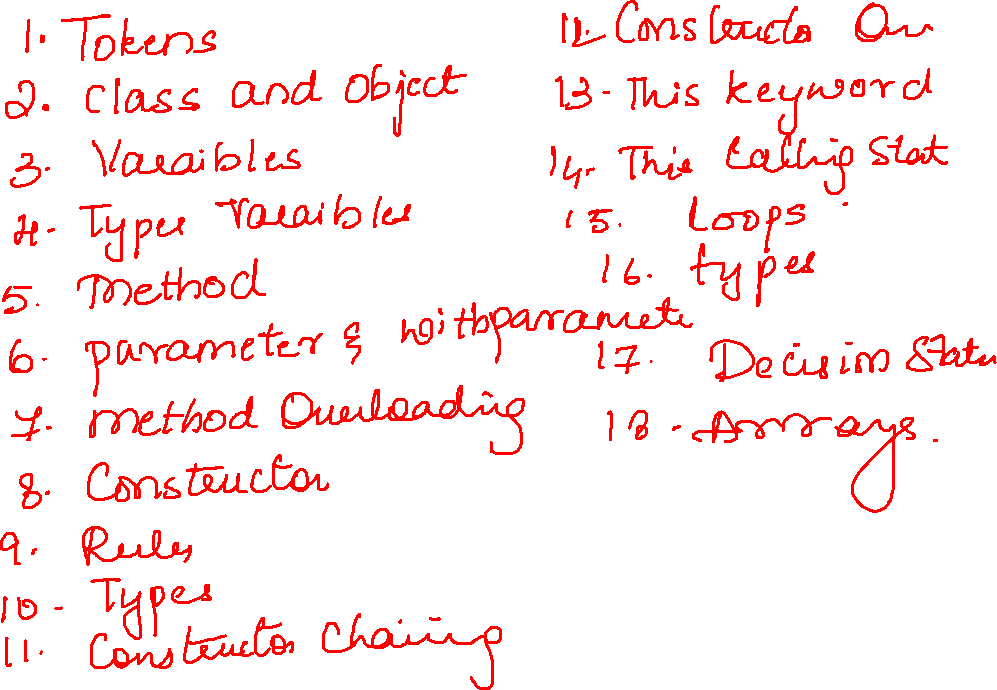 1. Tokens
2. Class and Object
3. Varaibles
4. Types Varaibles
5. Method
6. parameter & withparamete
7. Method Overloading
8. Constructor
9. Rules
10- Types
11. Constructor Chaining
12. Constructo Ov
13- This keyword
14. This Calling Stat
15. Loops
16. types
17. Decision State
18. Arrays.